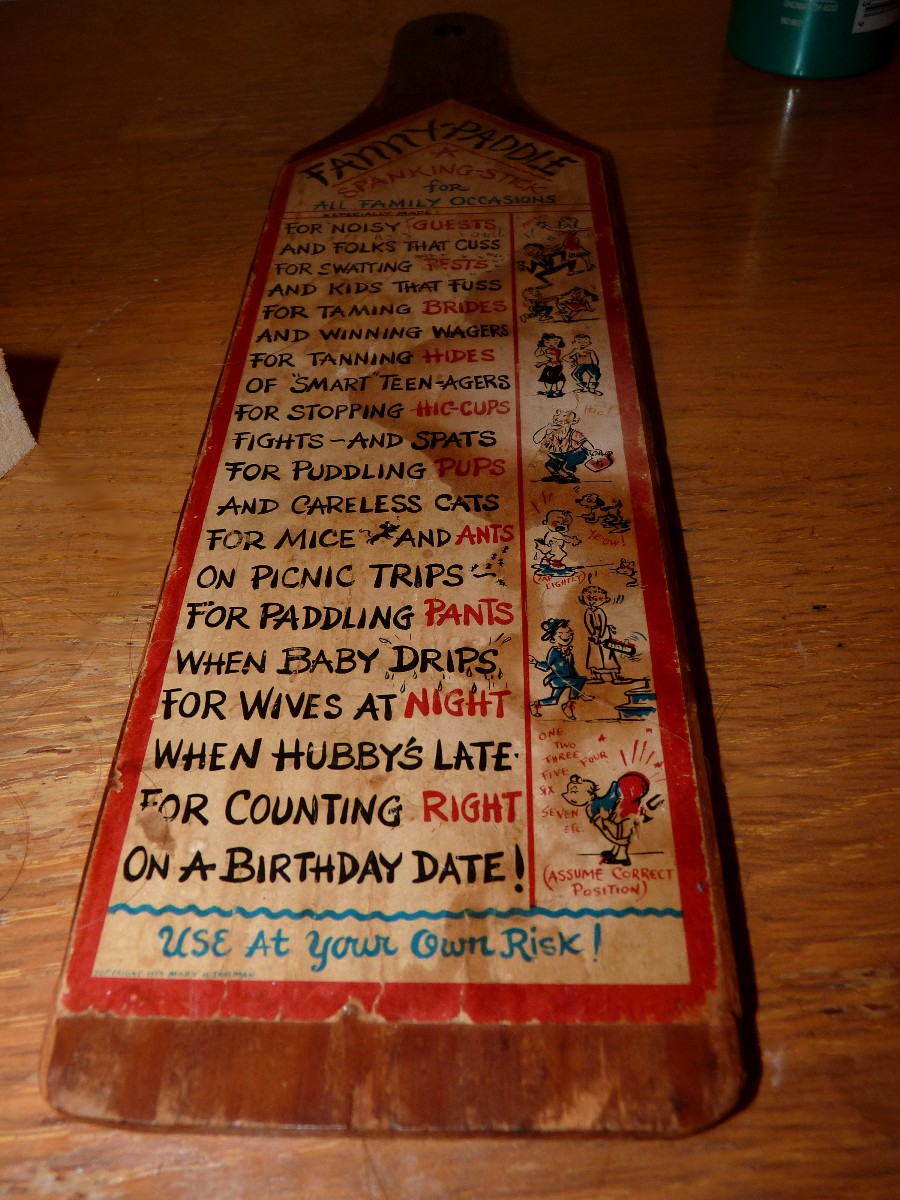 FANNY-PADDLE
A
SPANKING-STICK
for
ALL FAMILY OCCASIONS
ESPECIALLY MADE!
FOR NOISY GUESTS
AND FOLKS THAT CUSS
FOR SWATTING PESTS
AND KIDS THAT FUSS
FOR TAMING BRIDES
AND WINNING WAGERS
FOR TANNING HIDES
OF "SMART" TEEN-AGERS
FOR STOPPING HIC-CUPS
FIGHTS-AND SPATS
FOR PUDDLING PUPS
AND CARELESS CATS
FOR MICE AND ANTS
ON PICNIC TRIPS
FOR PADDLING PANTS
WHEN BABY DRIPS
FOR WIVES AT NIGHT
WHEN HUBBY'S LATE
FOR COUNTING RIGHT
ON A BIRTHDAY DATE!
Hic!
YEOW!
LIGHTLY)
ONE
TWO
THREE FOUR
FIVE
SIX
SEVEN
ETC.
(ASSUME CORRECT
POSITION)
USE At your Own Risk!
COPYRIGHT MARY